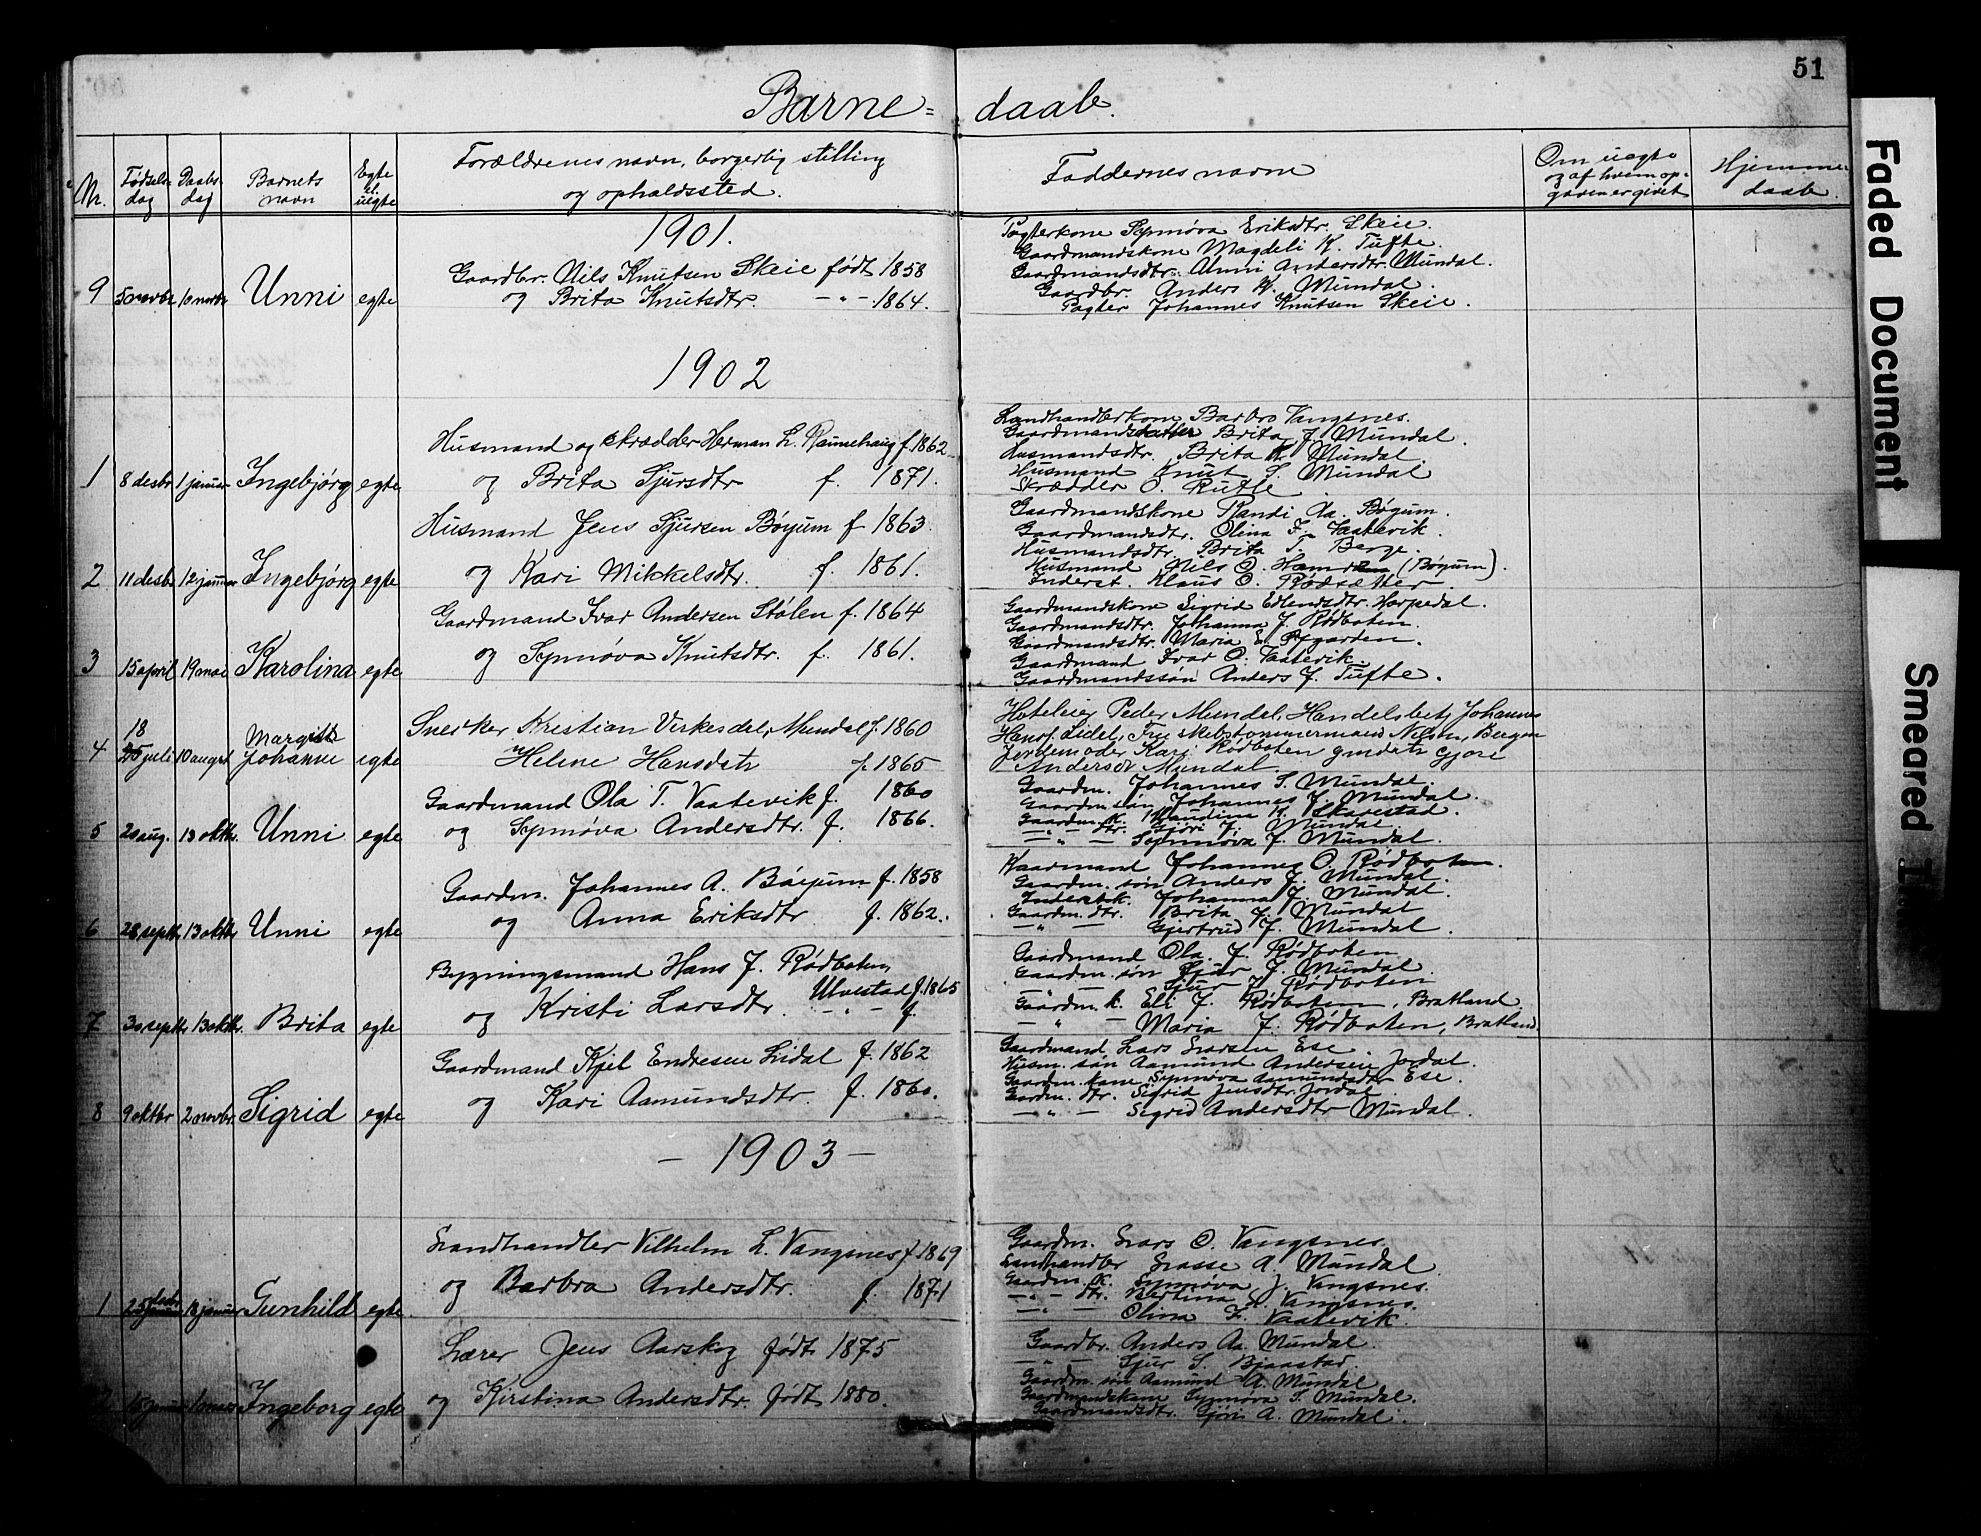 51
Barne=daab.
Nr.
Fødsels-
dag
Daabs-
dag
Barnets
navn
Egte
el.
uegte
Forældrenes navn, borgerlig stilling
og opholdssted.
Faddernes navne
Om uegte
og af hvem op-
gaven er givet
Hjemme
daab.
1901.
9 5 novbr 10 novbr Unni egte
Gaardbr. Nils Knutsen Skeie født 1858
og Brita Knutsdtr. -"- 1864.
Pagterkone Synnøva Eriksdtr. Skeie.
Gaardmandskone Magdeli K. Tufte.
Gaardmandsdtr. Unni Andersdtr. Mundal.
Gaardbr. Anders K. Mundal.
Pagter Johannes Knutsen Skeie.
1902
1 8 desbr 1 januar Ingebjørg egte
Husmand og skrædder Herman L. Raunehaug f. 1862
og Brita Sjursdtr f. 1871.
Landhandlerkone Barbro Vangsnes.
Gaardmandsdatter Brita J. Mundal.
Husmandsdtr. Brita K. Mundal.
Husmand Knut S. Mundal
Skrædder O. Rutle
2 11 desbr 12 januar Ingebjørg egte
Husmand Jens Sjursen Bøyum f 1863.
og Kari Mikkelsdtr. f. 1861.
Gaardmandskone Randi Aa. Bøyum.
Gaardmandsdtr. Olina F. Vaatevik.
Husmandsdtr. Brita T. Berge.
Husmand Nils O. (Bøyum).
Inderst. Klaus O. Rødsætter
3 15 april 19 mai Karolina egte
Gaardmand Ivar Andersen Stølen f. 1864
og Synnøva Knutsdtr. f. 1861.
Gaardmandskone Sigrid Erlendsdtr. Horpedal.
Gaardmandsdtr. Johanna J. Rødboten.
Gaardmandsdtr. Maria E. Øygarden.
Gaardmand Ivar O. Vaatevik.
Gaardmandssøn Anders J. Tufte.
18
4 25 juli 10 augst Margith
Johanne egte
Snerker Kristian Virkesdal, Mundal f. 1860
Helene Hansdatr f. 1865
Hoteleier Peder Mundal, Handelsbetj Johannes
Hansf. Lidel, Fru Skibstømmermand Nilsen, Bergen
Jordemoder Kari Rødboten gmdstr Gjøre
Andersdr Mundal.
5 20 aug. 13 oktbr. Unni egte
Gaardmand Ola T. Vaatevik f. 1860
og Synnøva Andersdtr. f. 1866.
Gaardm. Johannes S. Mundal.
Gaardm. søn Johannes J. Mundal.
Gaardm. k. K. Skarestad.
-"- dtr. Gjøri J. Mundal
-"- Synnøva J. Mundal.
6 28 septbr 13 oktbr Unni egte
Gaardm. Johannes A. Bøyum f. 1858
og Anna Eriksdtr f. 1862.
Kaarmand Johannes O. Rødboten.
Gaardm. søn Anders J. Mundal.
Inderstk. Johanna J. Mundal.
Gaardm. dtr. Brita J. Mundal
-"- Gjertrud J. Mundal.
7 30 septbr 13 oktbr. Brita egte
Bygningsmand Hans J. Rødboten,
Ulvestad f. 1865
og Kristi Larsdtr. -"- f.
Gaardmand Ola J. Rødboten
Gaardm. søn Sjur J. Mundal.
-"- Sjur J. Rødboten
Gaardm. k. Eli J. Rødboten, Bratland
-"- Maria J. Rødboten, Bratland.
8 9 oktbr 2 novbr. Sigrid egte
Gaardmand Kjel Endresen Lidal f. 1862
og Kari Aamundsdtr. f. 1860.
Gaardmand Lars Larsen Ese.
Husm. søn Aamund Andersen Jordal.
Gaardm. kone Synnøva Aamundsdtr Ese.
Gardm. dtr. Sigrid Jensdtr Jordal
-"- Sigrid Andersdtr Mundal.
- 1903 -
1 25 desbr
januar 18 januar Gunhild egte
Landhandler Vilhelm L. Vangsnes f. 1869
og Barbra Andersdtr. f. 1871
Gaardm. Lars O. Vangsnes.
Landhandler Lasse A. Mundal
Gaardm. k. Synnøva J. Vangsnes.
-"- dtr. Bertina L. Vangsnes.
-"- Olina F. Vaatevik.
2 15 januar 1 mars Ingeborg egte
Lærer Jens Aarskog født 1875
og Kirstina Andersdtr. født 1880.
Gaardbr. Anders Aa. Mundal.
-"- Sjur S. Bjaastad.
Gaardm. søn Aamund A. Mundal
Gaardmandskone Synnøva S. Mundal.
Gaardmandsdtr. Gjøri A. Mundal.
Faded Document
Smeared